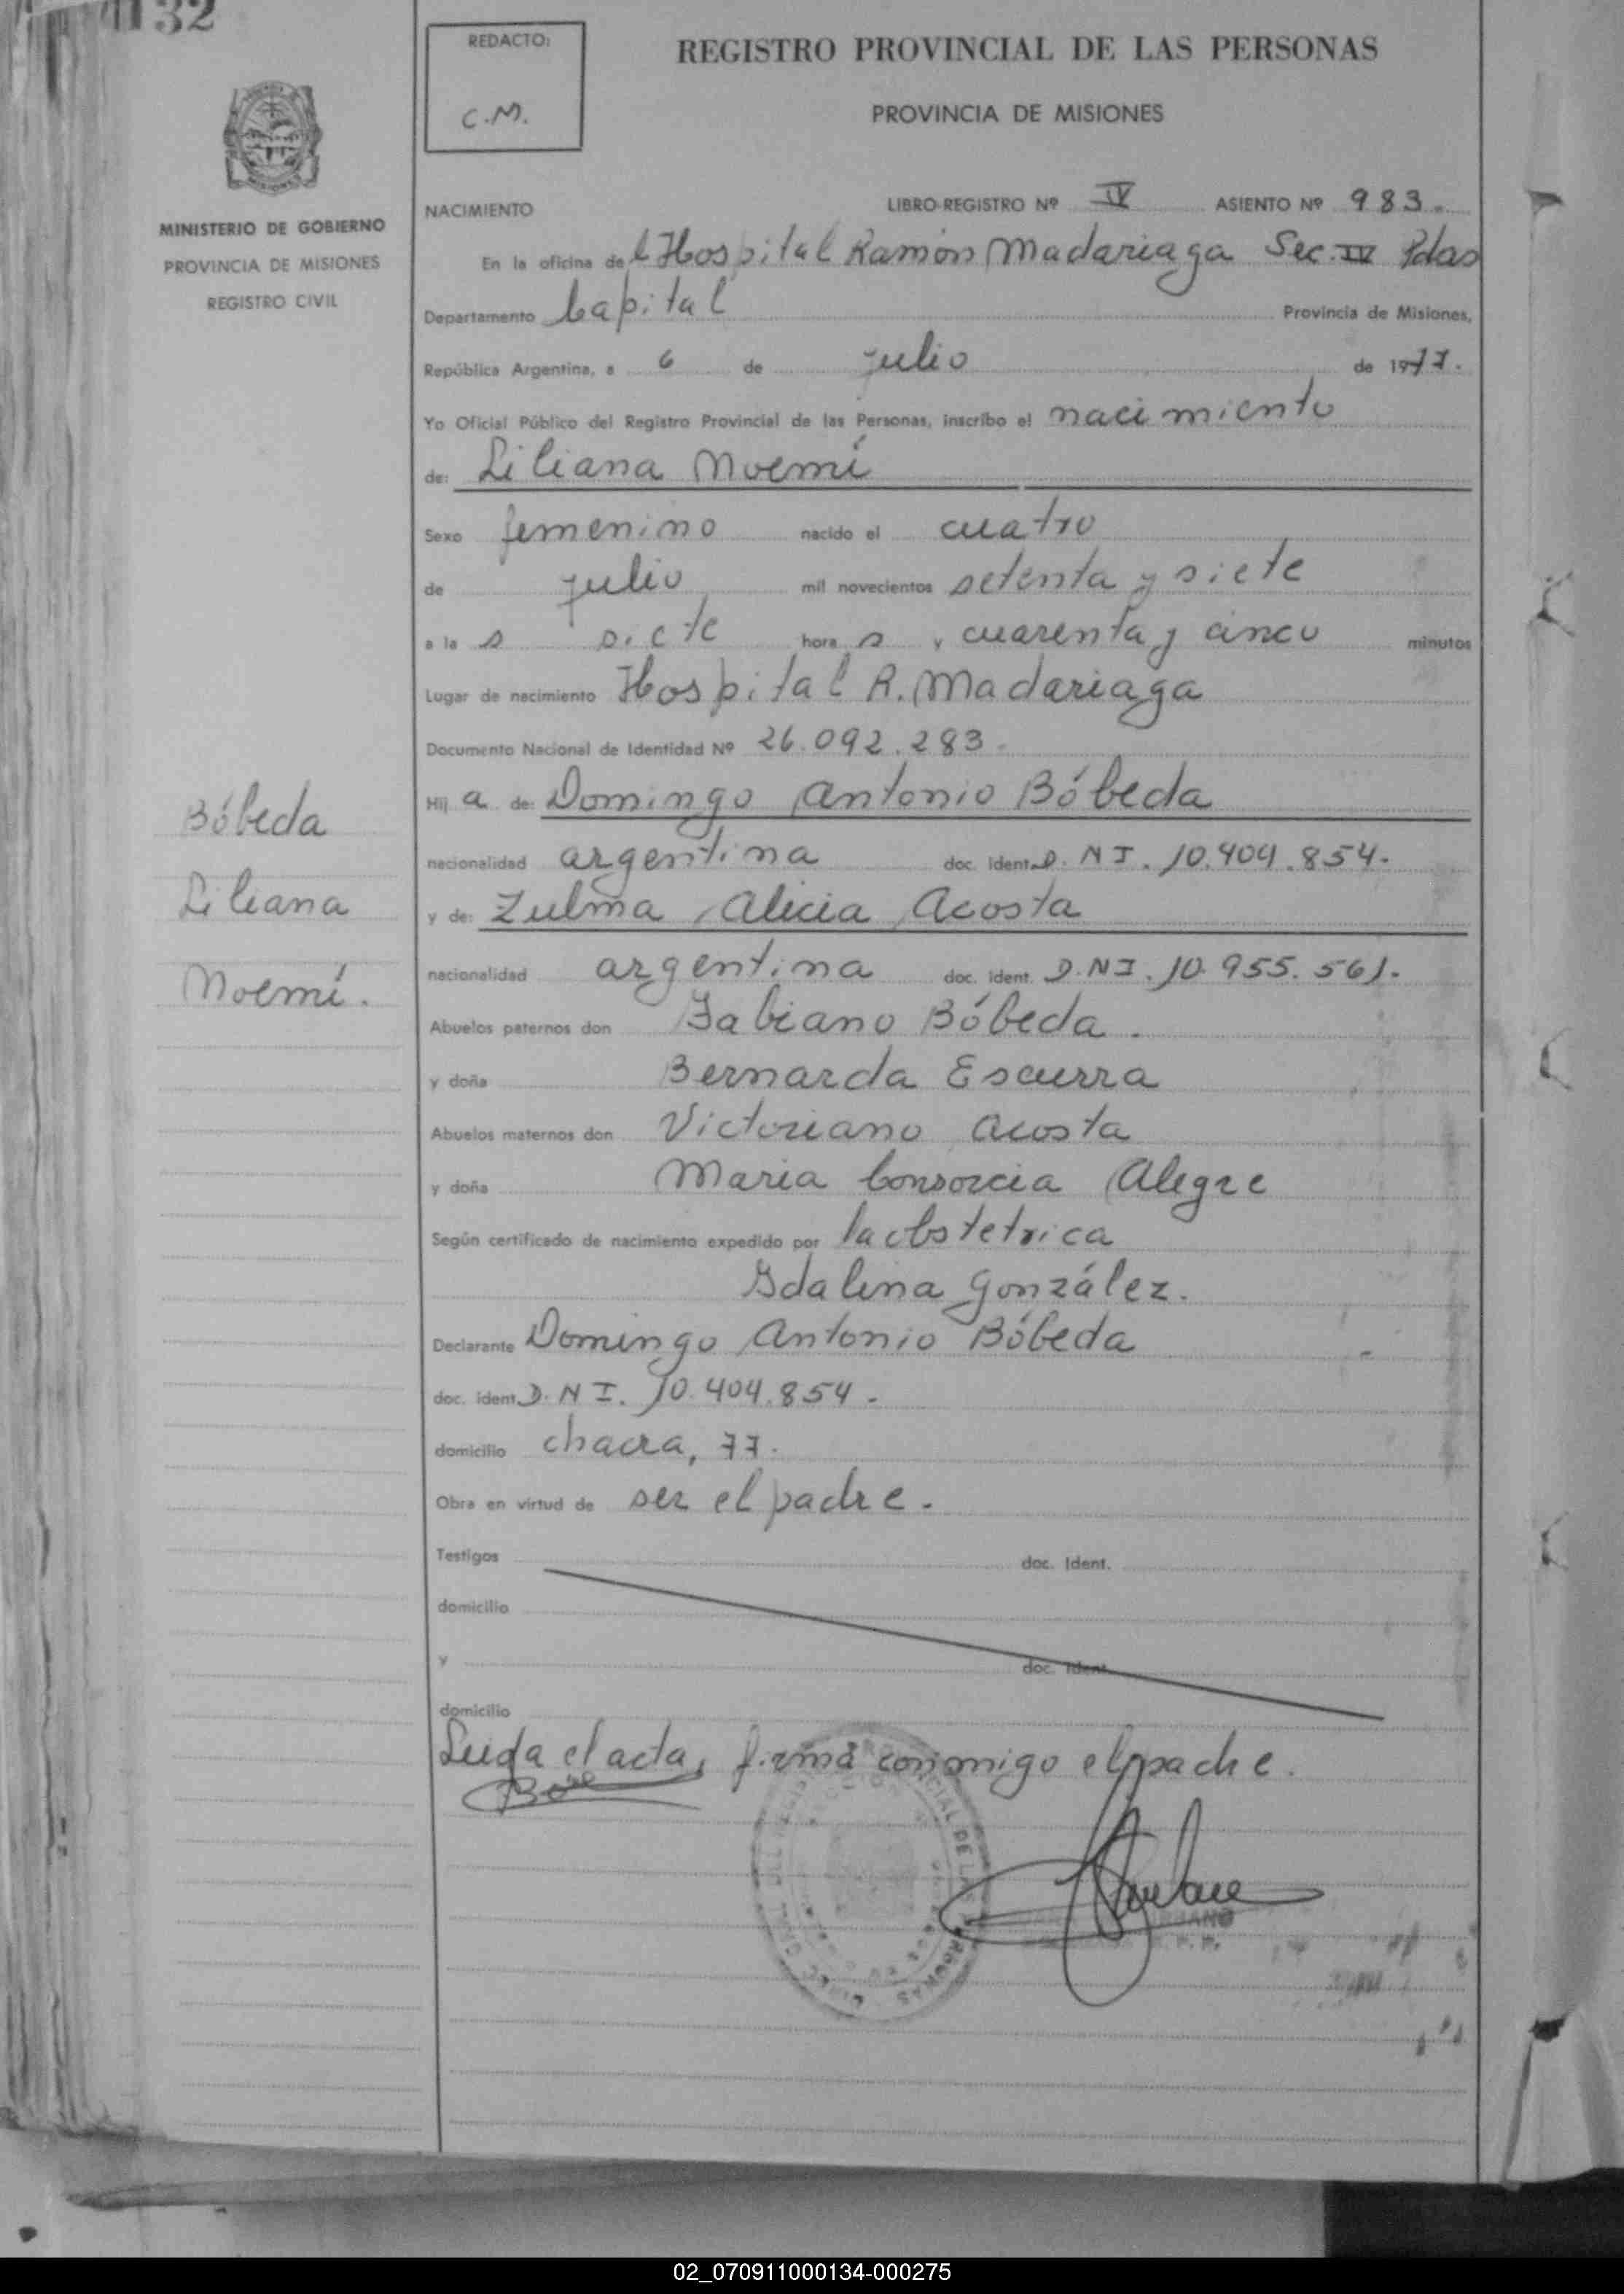 132
REDACTO:
C.M.
REGISTRO PROVINCIAL DE LAS PERSONAS
PROVINCIA DE MISIONES
MINISTERIO DE GOBIERNO
PROVINCIA DE MISIONES
REGISTRO CIVIL
NACIMIENTO LIBRO-REGISTRO Nº IV ASIENTO Nº 983.
En la oficina del Hospital Ramón Madariaga Sec. IV Pdas
Departamento Capital Provincia de Misiones,
República Argentina, a 6 de julio de 1977.
Yo Oficial Público del Registro Provincial de las Personas, inscribo el nacimiento
de: Liliana Noemí
Sexo femenino nacido el cuatro
de julio mil novecientos setenta y siete
a la s siete hora s y cuarenta y cinco minutos
Lugar de nacimiento Hospital R. Madariaga
Documento Nacional de Identidad Nº 26.092.283.
Hij a de: Domingo Antonio Bóbeda
nacionalidad argentina doc. ident. D.N.I. 10.404.854.
y de: Zulma Alicia Acosta
nacionalidad argentina doc. ident. D.N.I. 10.955.561.
Abuelos paternos don Fabiano Bóbeda.
y doña Bernarda Escurra
Abuelos maternos don Victoriano Acosta
y doña Maria Consorcia Alegre
Según certificado de nacimiento expedido por la obstetrica
Idalina González.
Declarante Domingo Antonio Bóbeda
doc. ident. D.N.I. 10.404.854.
domicilio chacra, 77.
Obra en virtud de ser el padre.
Testigos doc. ident.
domicilio
y doc. ident.
domicilio
Leída el acta, firma conmigo el padre.
Bóbeda
Liliana
Noemí.
02_070911000134-000275